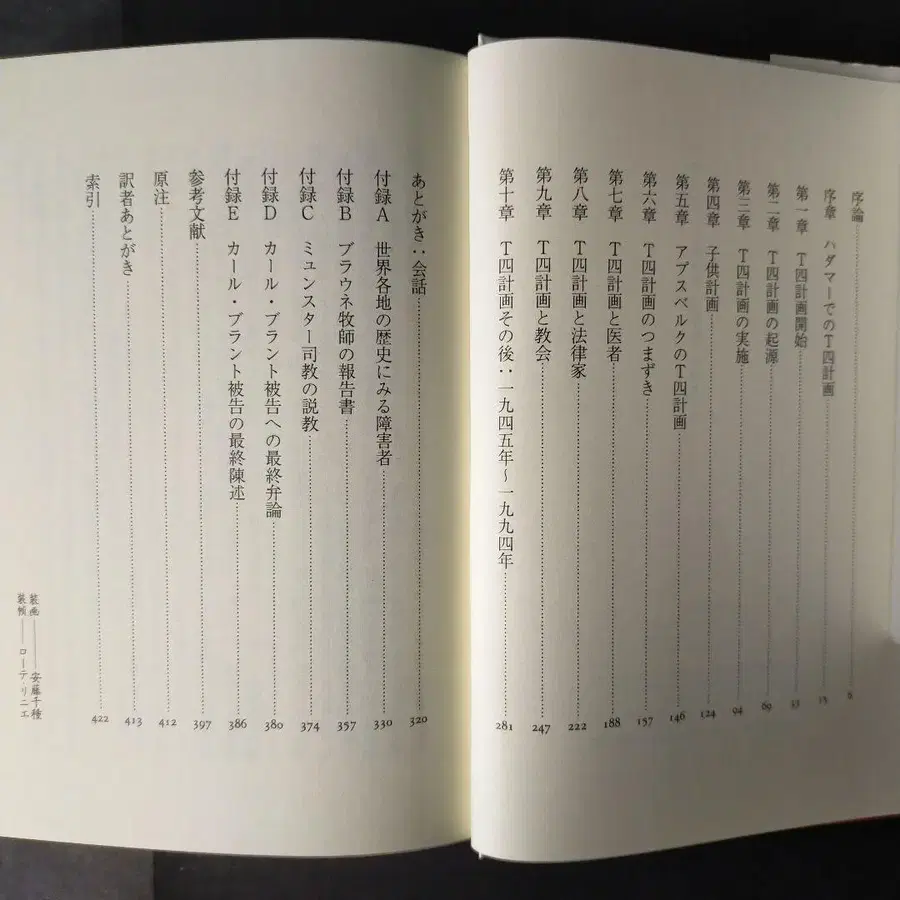 序論 6
序章 ハダマーでのT四計画 15
第一章 T四計画開始 33
第二章 T四計画の起源 69
第三章 T四計画の実施 94
第四章 子供計画 124
第五章 アプスベルクのT四計画 146
第六章 T四計画のつまずき 157
第七章 T四計画と医者 188
第八章 T四計画と法律家 222
第九章 T四計画と教会 247
第十章 T四計画その後：一九四五年〜一九九四年 281
あとがき：会話 320
付録A 世界各地の歴史にみる障害者 330
付録B ブラウネ牧師の報告書 357
付録C ミュンスター司教の説教 374
付録D カール・ブラント被告への最終弁論 380
付録E カール・ブラント被告の最終陳述 386
参考文献 397
原注 412
訳者あとがき 413
索引 422
装画——安藤千種
装幀——ローテ・リニエ